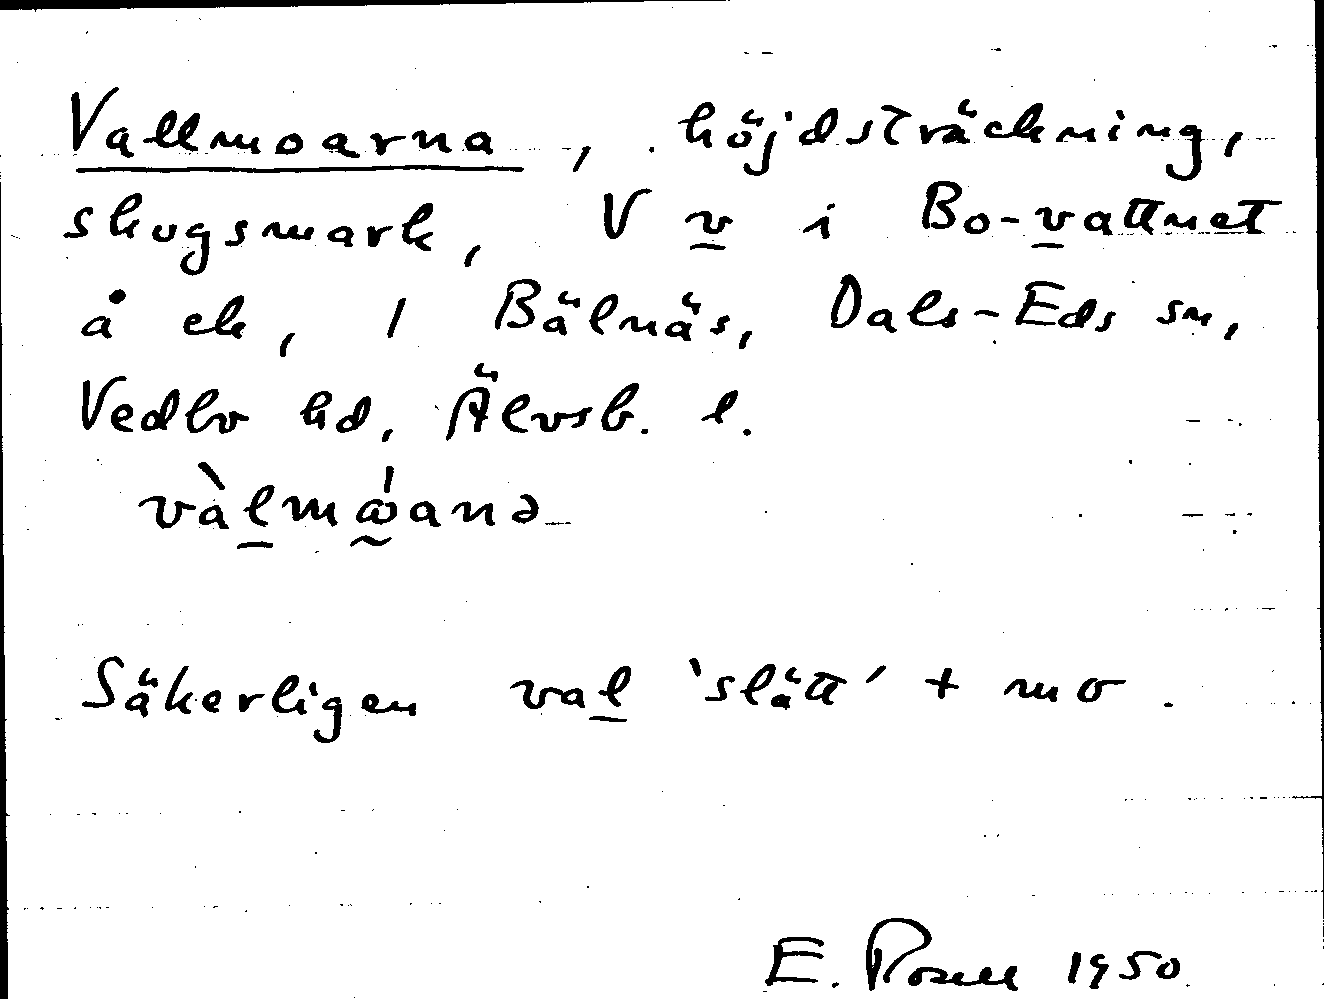 Vallmoarna, höjdsträckning,
skogsmark, V v i Bo-vattnet
å ek, 1 Bälnäs, Dals-Eds sn,
Vedbo hd, Älvsb. l.
Säkerligen val 'slätt' + mo.
E. Rosell 1950